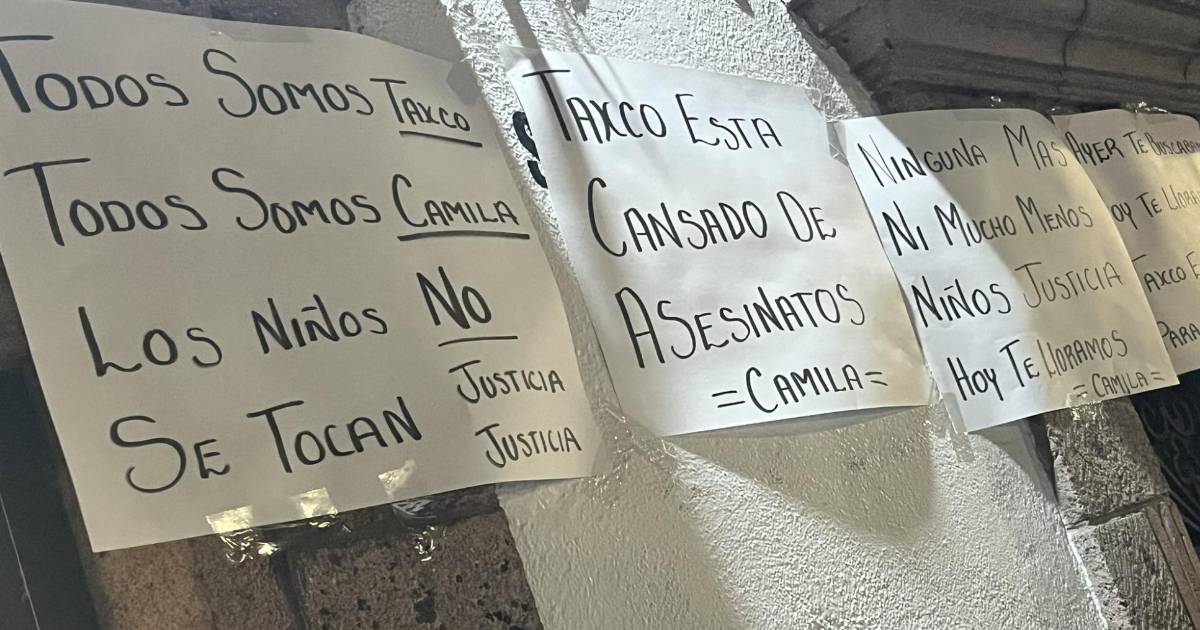 TODOS SOMOS TAXCO
TODOS SOMOS CAMILA
LOS NIÑOS NO
SE TOCAN
JUSTICIA
JUSTICIA
TAXCO ESTA
CANSADO DE
ASESINATOS
=CAMILA=
NINGUNA MAS
NI MUCHO MENOS
NIÑOS JUSTICIA
HOY TE LLORAMOS
=CAMILA=
AYER TE
OY TE
TAXCO
PARA